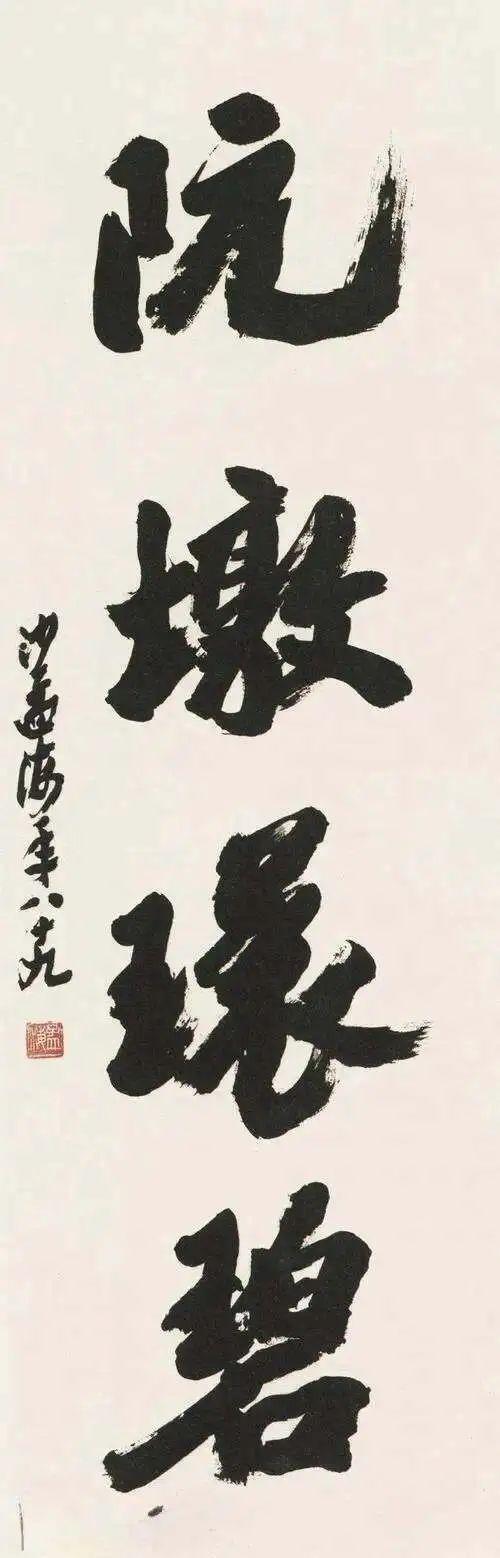 阮墩環碧
沙孟海年八十九
孟海